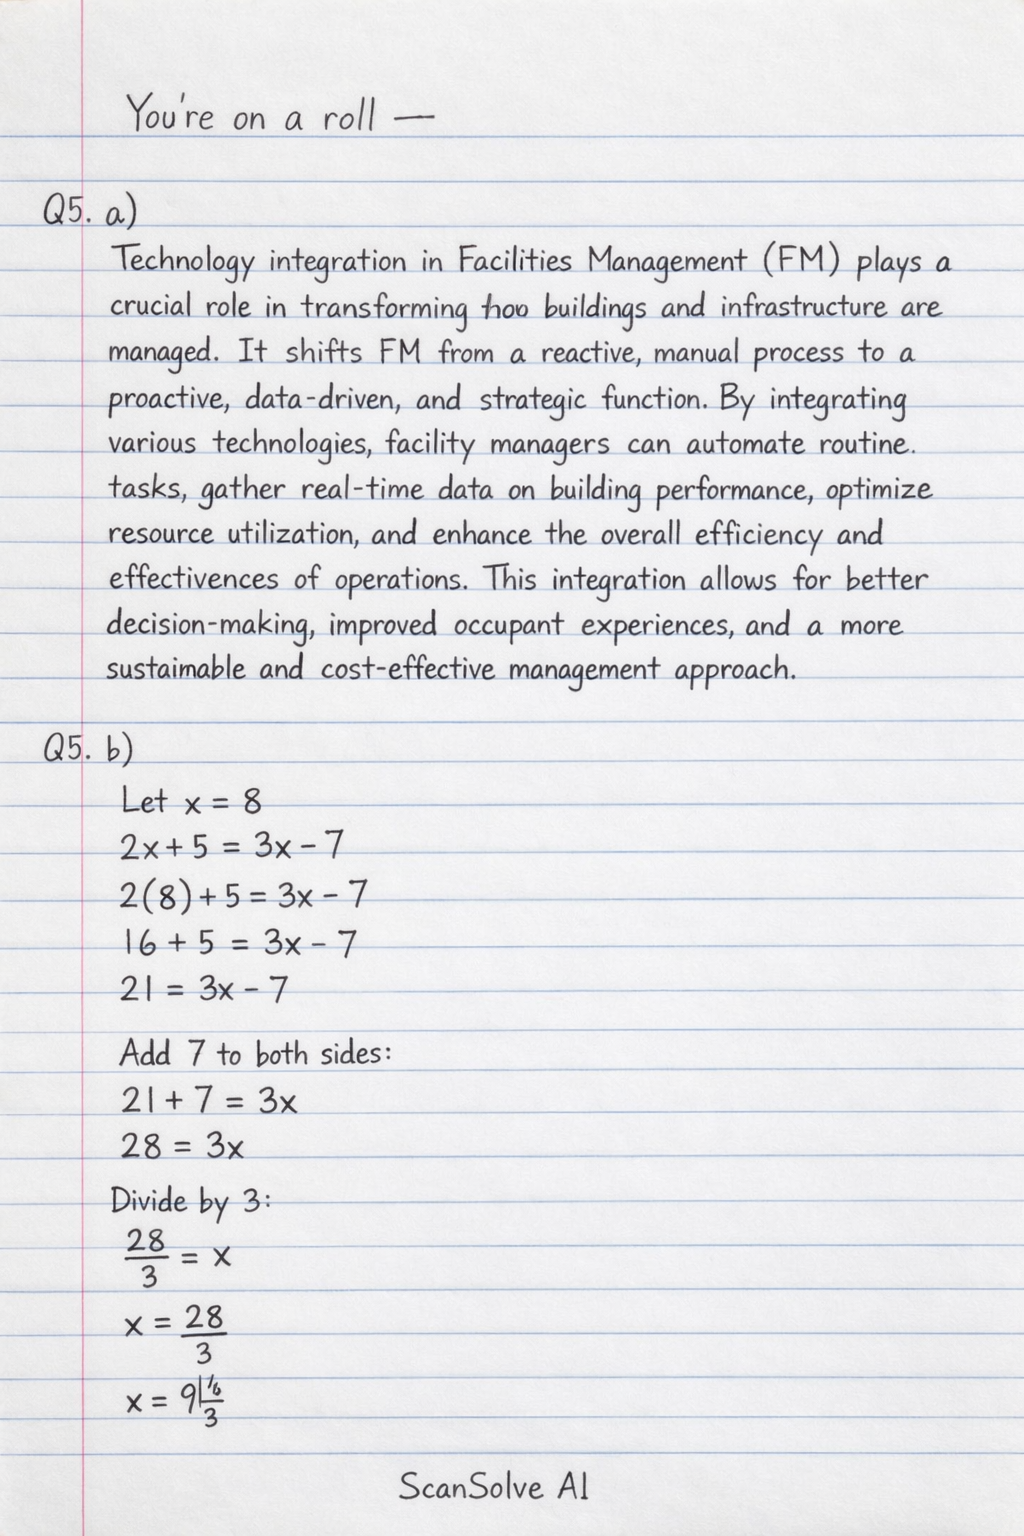 You're on a roll —
Q5. a)
Technology integration in Facilities Management (FM) plays a
crucial role in transforming hoo buildings and infrastructure are
managed. It shifts FM from a reactive, manual process to a
proactive, data-driven, and strategic function. By integrating
various technologies, facility managers can automate routine.
tasks, gather real-time data on building performance, optimize
resource utilization, and enhance the overall efficiency and
effectivences of operations. This integration allows for better
decision-making, improved occupant experiences, and a more
sustaimable and cost-effective management approach.
Q5. b)
Let x = 8
2x + 5 = 3x - 7
2(8) + 5 = 3x - 7
16 + 5 = 3x - 7
21 = 3x - 7
Add 7 to both sides:
21 + 7 = 3x
28 = 3x
Divide by 3:
28/3 = x
x = 28/3
x = 9
ScanSolve AI